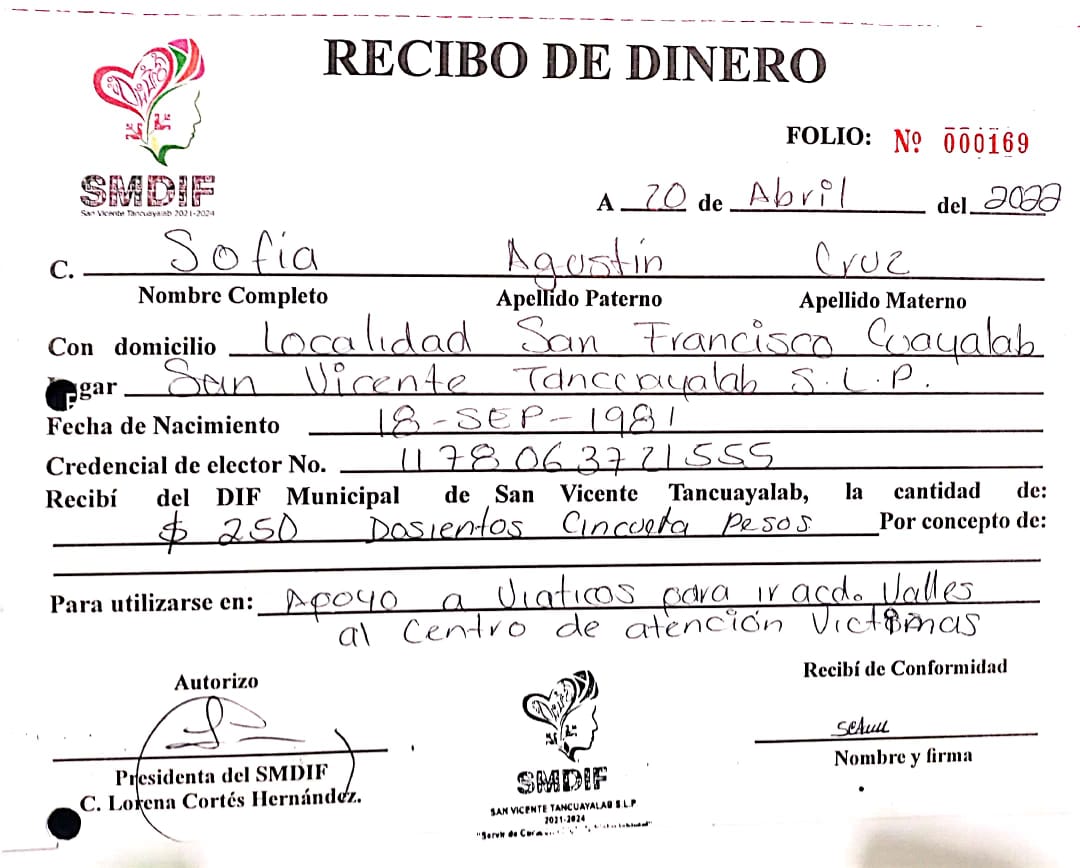 RECIBO DE DINERO
FOLIO: Nº 000169
SMDIF
San Vicente Tancuayalab 2021-2024
A 20 de Abril del 2022
C. Sofia Agustin Cruz
Nombre Completo Apellido Paterno Apellido Materno
Con domicilio Localidad San Francisco Cuayalab
gar San Vicente Tanccuayalab S.L.P.
Fecha de Nacimiento 18-SEP-1981
Credencial de elector No. 1178063721555
Recibí del DIF Municipal de San Vicente Tancuayalab, la cantidad de:
$ 250 Dosientos Cincueta Pesos Por concepto de:
Para utilizarse en: Apoyo a Viaticos para ir acd. Valles
al Centro de atención Victimas
Autorizo
Recibí de Conformidad
Presidenta del SMDIF
C. Lorena Cortés Hernández.
Nombre y firma
SMDIF
SAN VICENTE TANCUAYALAB S.L.P
2021-2024
"Servir de